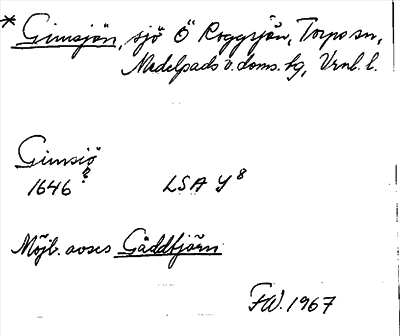 * Gimsjön, sjö Ö Roggsjön, Torps sn,
Medelpads v. doms. hg, Vrnl. l.
Gimsiö
1646 ? LSA Y 8
Möjl. avses Gäddtjärn
FW. 1967